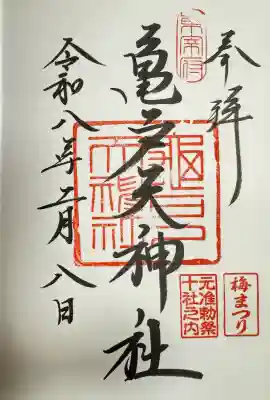 奉拝
亀戸天神社
令和八年二月八日
梅まつり
元准勅祭
十社之内